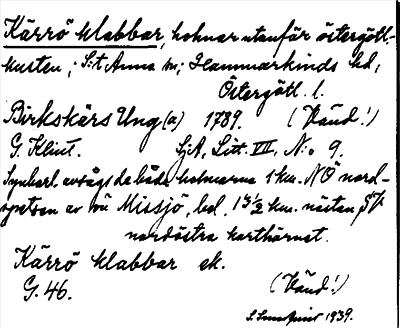 Kärrö klabbar, holmar utanför östergötl.-
kusten, i S:t Anna sn, Hammarkinds hd,
Östergötl. l.
Birkskärs Ung(a) 1789. (Vänd!)
G. Klint. SjA, Litt. VIII, N:o 9.
Synbarl. avsågs de båda holmarna 1 km. NÖ nord-
spetsen av ön Missjö, bel. 1 3/2 km. nästan SV
nordöstra karthörnet.
Kärrö klabbar ek.
G. 46. (Vänd!)
1939.